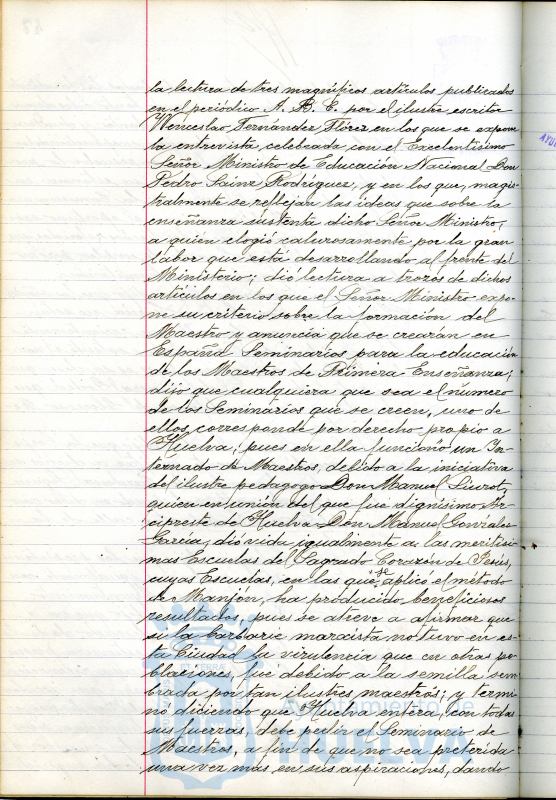 la lectura de tres magníficos artículos publicados
en el periódico A. B. C. por el ilustre escritor
Wenceslao Fernández Flórez en los que se expone
la entrevista, celebrada con el Excelentísimo
Señor Ministro de Educación Nacional Don
Pedro Sainz Rodríguez, y en los que, magis-
tralmente se reflejan las ideas que sobre la
enseñanza sustenta dicho Señor Ministro,
a quién elogió calurosamente por la gran
labor que está desarrollando al frente del
Ministerio; dió lectura a trozos de dichos
artículos en los que el Señor Ministro expo-
ne su criterio sobre la formación del
Maestro y anuncia que se crearán en
España Seminarios para la educación
de los Maestros de Primera Enseñanza;
dijo que cualquiera que sea el número
de los Seminarios que se creen, uno de
ellos, corresponde por derecho propio a
Huelva, pues en ella funcionó un In-
ternado de Maestros, debido a la iniciativa
del ilustre pedagogo Don Manuel Siurot,
quien en unión del que fué dignísimo Ar-
cipreste de Huelva Don Manuel González
García, dió vida igualmente a las meritísi-
mas Escuelas del Sagrado Corazón de Jesús,
cuyas Escuelas, en las que se aplicó el método
de Manjón, ha producido beneficiosos
resultados, pues se atreve a afirmar que
si la barbarie marxista no tuvo en es-
ta Ciudad la virulencia que en otras po-
blaciones, fué debido a la semilla sem-
brada por tan ilustres maestros; y termi-
nó diciendo que Huelva entera, con todas
sus fuerzas, debe pedir el Seminario de
Maestros, a fin de que no sea preterida
una vez más en sus aspiraciones, dando
Ayuntamiento de
HUELVA